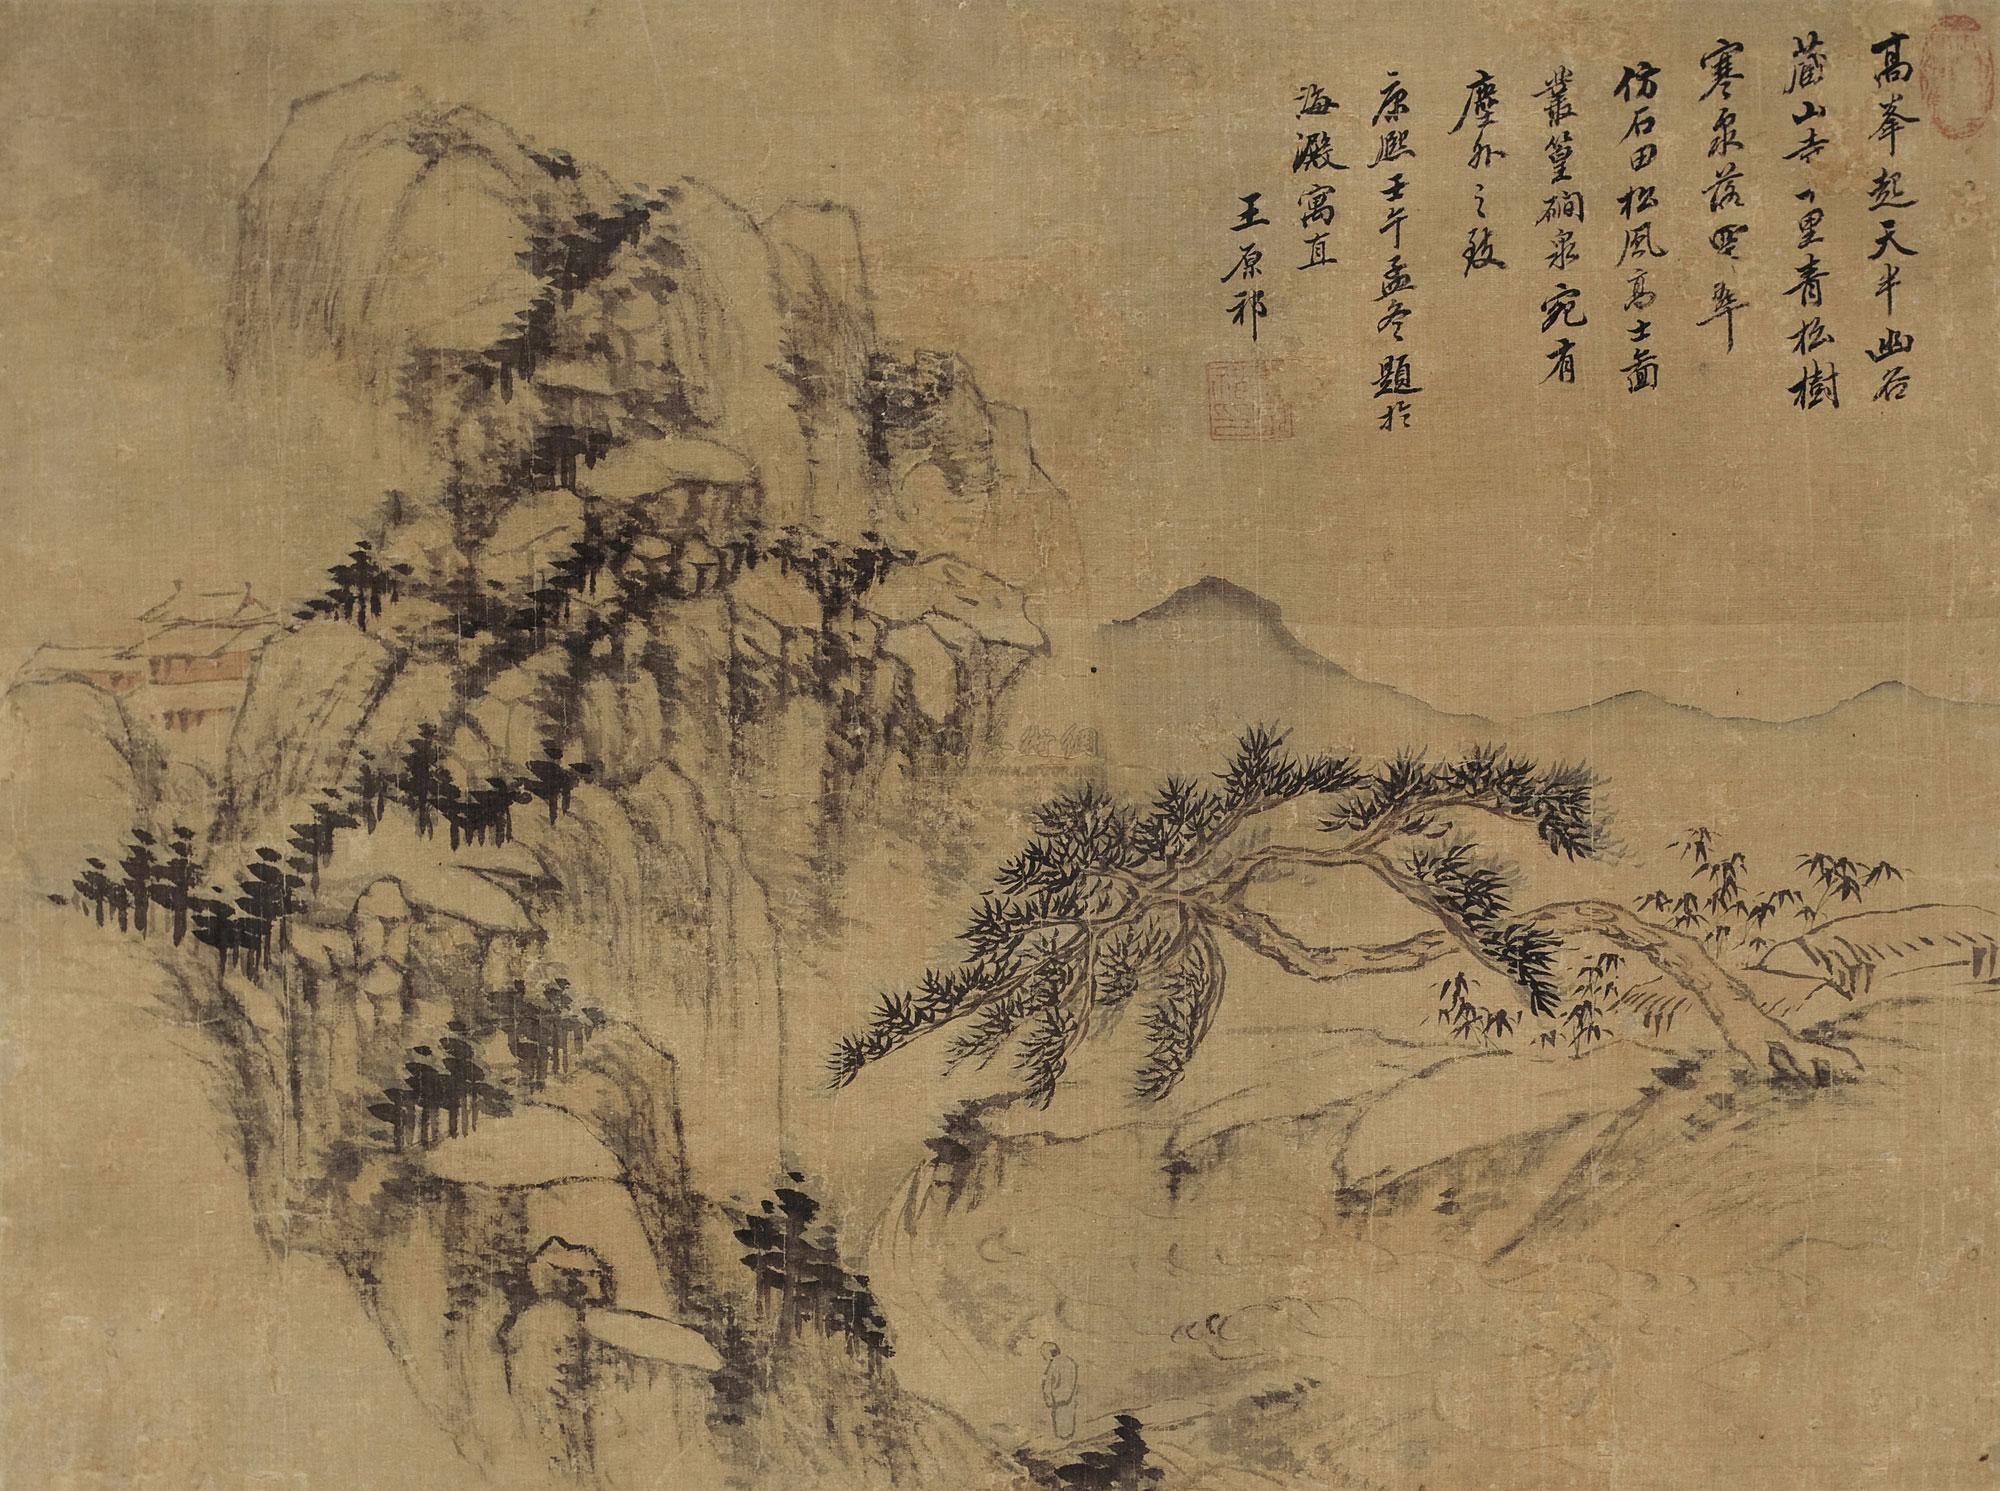 高峯起天半幽谷
藏山寺一里青松樹
寒泉落空翠
仿石田松風高士啚
叢篁磵泉宛有
塵外之致
康熙壬午孟冬題於
海澱寓直
王原祁